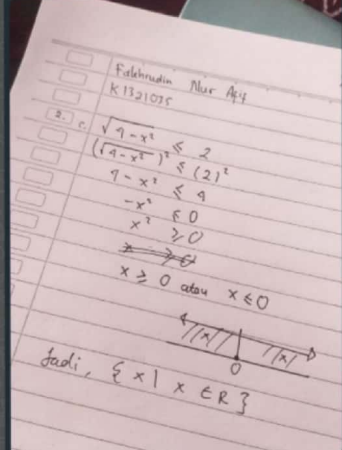 Fakhrudin Nur Afif
K1321035
2. c. √4-x² ≤ 2
(√4-x²)² ≤ (2)²
4-x² ≤ 4
-x² ≤ 0
x² ≥ 0
x ≥ 0 atau x ≤ 0
0
Jadi, {x | x ∈ R}